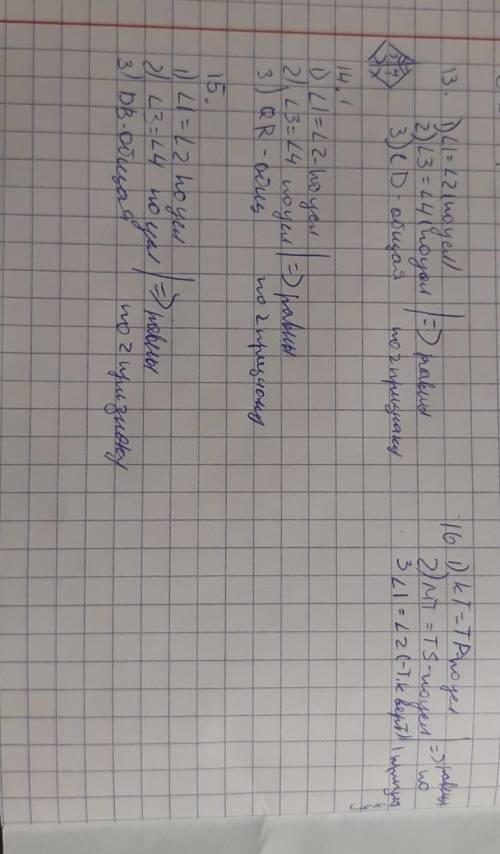 13.
1) ∠1 = ∠2 (по усл)
2) ∠3 = ∠4 (по усл | => равны
3) CD - общая по 2 признаку
14.
1) ∠1 = ∠2 - по усл
2) ∠3 = ∠4 по усл | => равны
3) QR - общ по 2 признаку
15.
1) ∠1 = ∠2 по усл
2) ∠3 = ∠4 по усл | => равны
3) DB - общая по 2 признаку
16
1) KT = TP по усл
2) MT = TS - по усл | => равны по
3 ∠1 = ∠2 (-т.к верт) 1 призн